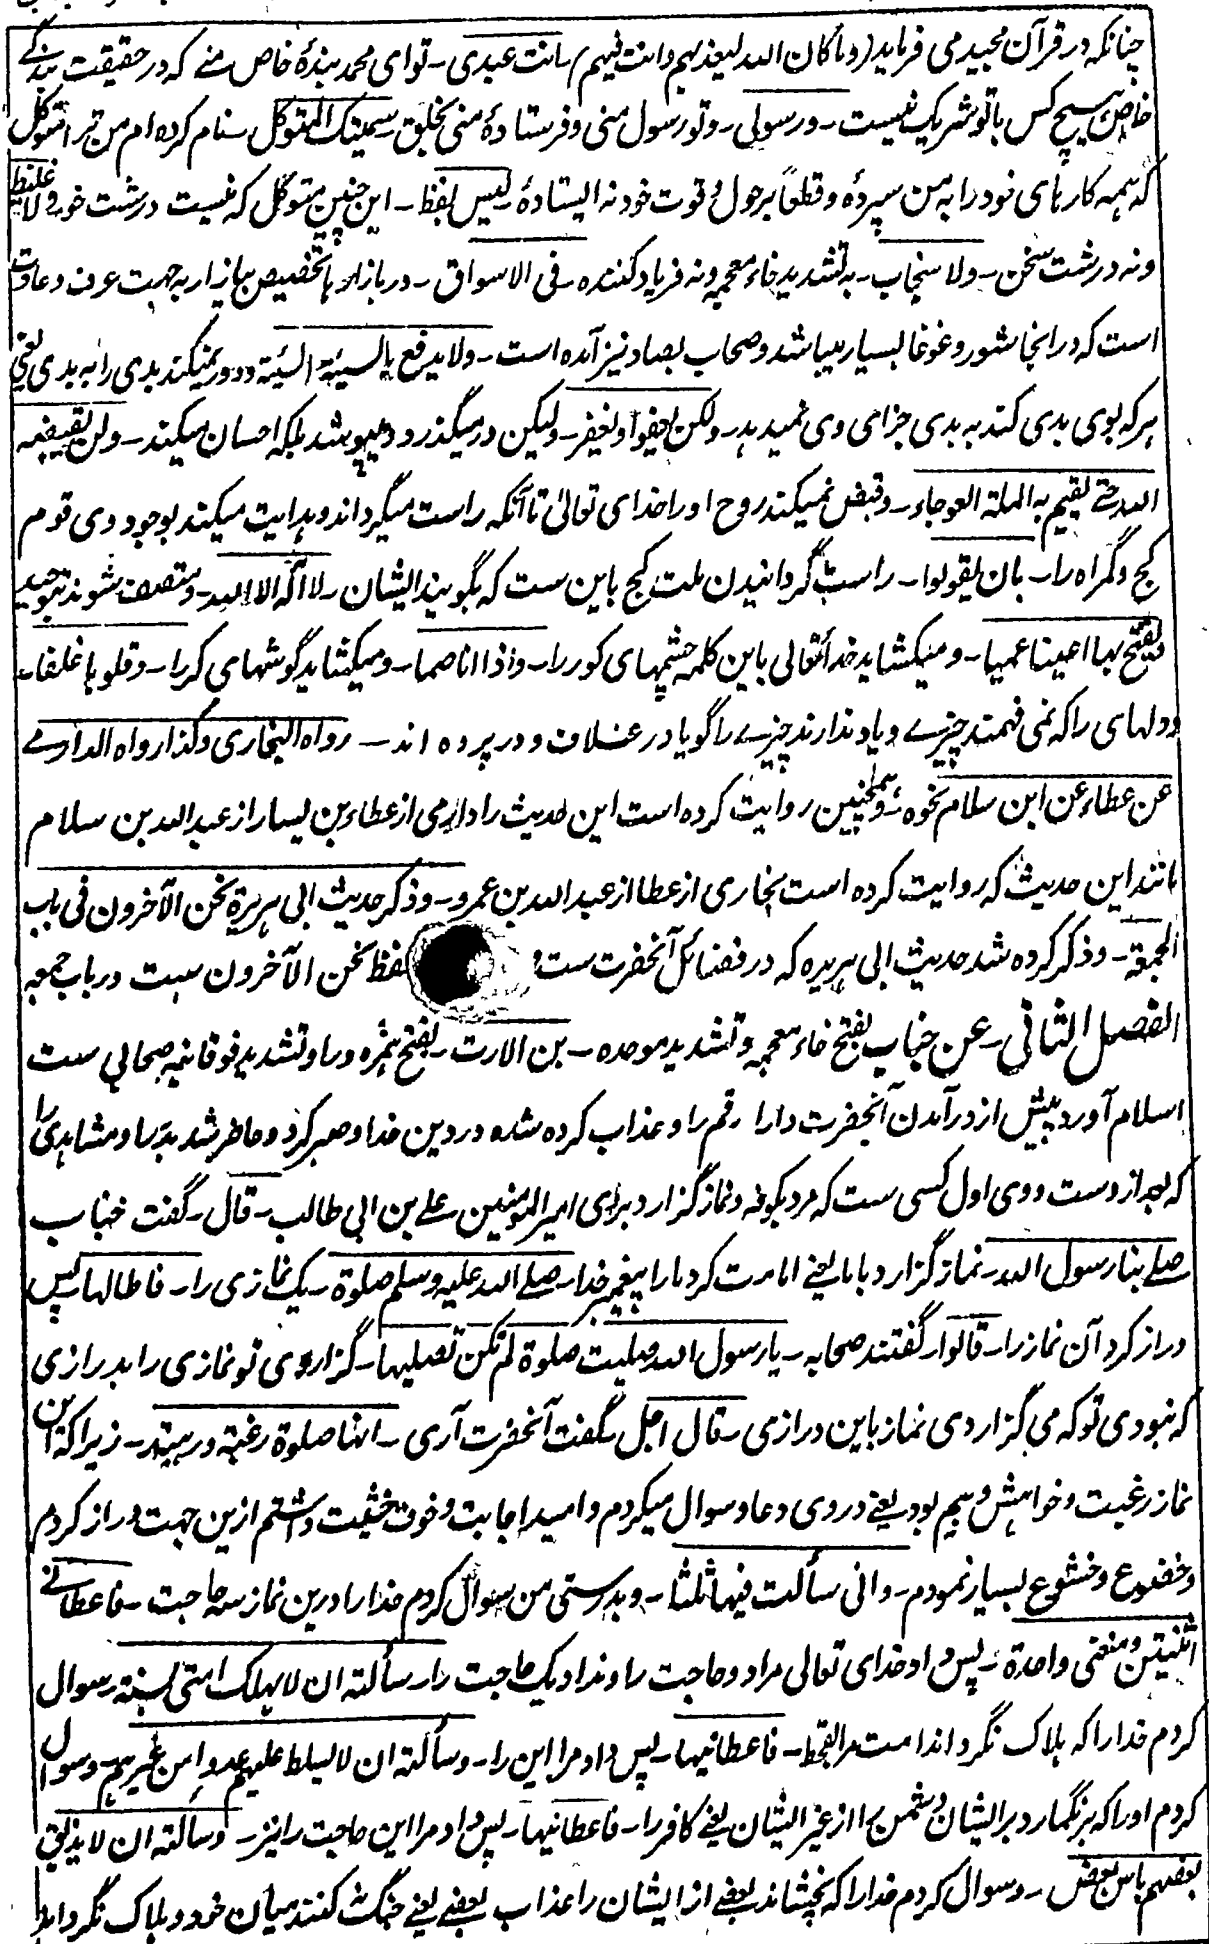 چنانکه در قرآن مجید می فرماید (وماکان الله لیعذبهم وانت فیهم) انت عبدی - تو ای محمد بندهٔ خاص منے که در حقیقت بندگے
خاص هیچ کس باتو شریک نیست - ورسولی - وتو رسول منی وفرستادهٔ منی بخلق - سمیتک المتوکل - نام کرده ام من ترا متوکل
که همه کارهای خود را به من سپردهٔ وقطعاً برحول و قوت خود نه ایستادهٔ - لیس بفظ - این چنین متوکل که نیست درشت خو ولا غلیظ
ونه درشت سخن - ولا سخاب - به تشدید خاء معجمه ونه فریاد کننده - فی الاسواق - در بازارها تخصیص ببازار به جهت عرف وعادت
است که در انجا شور وغوغا بسیار میباشد وصخاب بصاد نیز آمده است - ولا یدفع بالسیئة السیئة ودور نمیکند بدی را به بدی یعنی
هر که بوی بدی کند به بدی جزای وی نمیدهد - ولکن یعفوا ویغفر - ولیکن در میگذرد ومیپوشد بلکه احسان میکند - ولن یقبضه
الله حتے یقیم به الملة العوجاء - وقبض نمیکند روح او را خدای تعالیٰ تا آنکه راست میگرداند وهدایت میکند بوجود وی قوم
کج وگمراه را - بان یقولوا - راست گردانیدن ملت کج باین ست که بگویند ایشان - لا اله الا الله - ومتصف شوند بتوحید
ویفتح بها اعینا عمیا - ومیکشاید خدا تعالی باین کلمه چشمهای کور را - واذانا صما - ومیکشاید گوشهای کر را - وقلوبا غلفاء
ودلهای را که نمی فهمند چیزے ویاد ندارند چیزے را گویا در غلاف ودر پرده اند - رواه البخاری وکذا رواه الدارمے
عن عطاء عن ابن سلام نحوه - وهمچنین روایت کرده است این حدیث را دارمی از عطاء بن یسار از عبد الله بن سلام
مانند این حدیث که روایت کرده است بخاری از عطا از عبد الله بن عمرو - وذکر حدیث ابی هریرة نحن الآخرون فی باب
الجمعة - وذکر کرده شد حدیث ابی هریره که در فضائل آنحضرت ست و لفظ نحن الآخرون سبت در باب جمعه
الفصل الثانی - عن خباب بفتح خاء معجمه وتشدید موحده - بن الارت - بفتح همزه ورا وتشدید فوقانیه صحابی ست
اسلام آورد پیش از در آمدن آنحضرت دار ارقم را وعذاب کرده شده در دین خدا وصبر کرد وحاضر شد بدر را ومشاهدی را
که بعد از وست ووی اول کسی ست که مرد بکوفه ونماز گزارد برای امیر المومنین علے بن ابی طالب - قال - گفت خباب
صلے بنا رسول الله - نماز گزارد باما یعنے امامت کرد مارا پیغمبر خدا - صلے الله علیه وسلم صلوة - یک نمازی را - فاطالها - پس
دراز کرد آن نماز را - قالوا - گفتند صحابه - یا رسول الله صلیت صلوة لم تکن تصلیها - گزاردی تو نمازی را بدرازی
که نبودی تو که می گزاردی نماز باین درازی - قال اجل - گفت آنحضرت آری - انها صلوة رغبة ورهبة - زیرا که این
نماز رغبت وخواهش وبیم بود یعنے در وی دعا وسوال میکردم وامید اجابت وخوف خشیت داشتم ازین جهت دراز کردم
وخضوع وخشوع بسیار نمودم - وانی سألت فیها ثلثا - وبدرستی من سوال کردم خدا را درین نماز سه حاجت - فاعطانے
اثنتین ومنعنی واحدة - پس داد خدای تعالی مرا دو حاجت را وندا دیک حاجت را - سألته ان لا یهلک امتی بسنة - سوال
کردم خدا را که هلاک نگرداند امت مرا بقحط - فاعطانیها - پس داد مرا این را - وسألته ان لا یسلط علیهم عدوا من غیرهم - وسوال
کردم او را که برنگمارد بر ایشان دشمن را از غیر ایشان یعنے کافر را - فاعطانیها - پس داد مرا این حاجت را نیز - وسألته ان لا یذیق
بعضهم باس بعض - وسوال کردم خدا را که نچشاند بعضے از ایشان را عذاب بعضے یعنے جنگ کنند میان خود وهلاک نگرداند